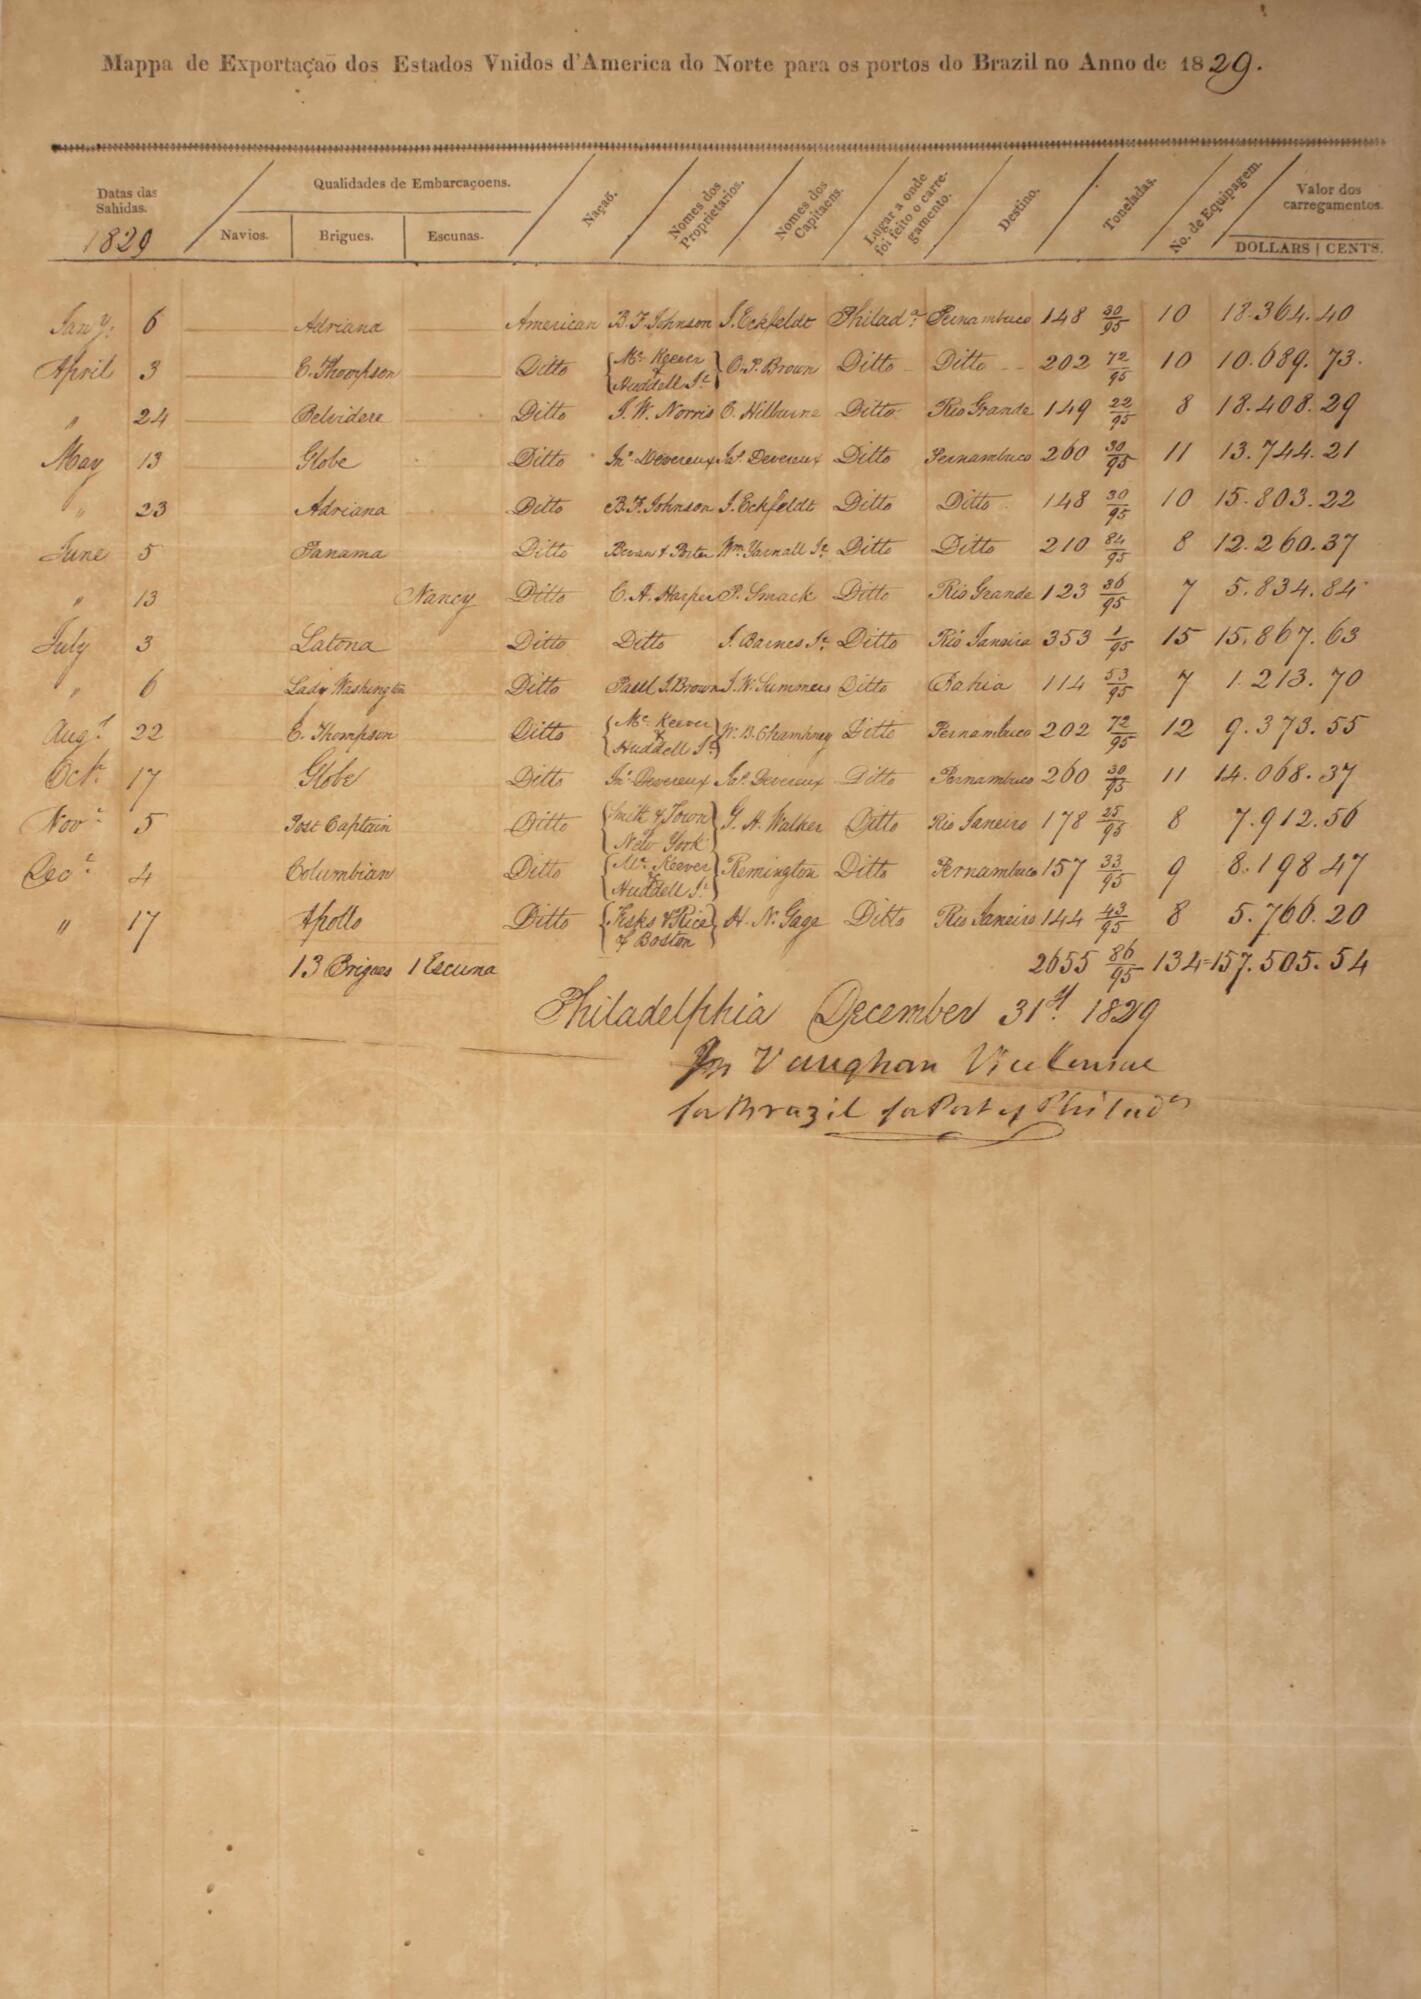 Mappa de Exportaçaõ dos Estados Vnidos d'America do Norte para os portos do Brazil no Anno de 1829.
Datas das Sahidas. 1829
Qualidades de Embarcaçoens.
Navios. Brigues. Escunas.
Naçaõ.
Nomes dos Proprietarios.
Nomes dos Capitaens.
Lugar a onde foi feito o carregamento.
Destino.
Toneladas.
No. de Equipagem.
Valor dos carregamentos.
DOLLARS | CENTS.
Jany. 6 Adriana American B. F. Johnson J. Eckfeldt Philada. Pernambuco 148 30/95 10 18.364.40
April 3 E. Thompson Ditto {Mc. Keever & Huddell Jr.} O. P. Brown Ditto Ditto 202 72/95 10 10.689.73.
" 24 Belvidere Ditto J. W. Norris E. Hilburne Ditto Rio Grande 149 22/95 8 18.408.29
May 13 Globe Ditto Jno. Devereux Jas. Devereux Ditto Pernambuco 260 30/95 11 13.744.21
" 23 Adriana Ditto B. F. Johnson J. Eckfeldt Ditto Ditto 148 30/95 10 15.803.22
June 5 Panama Ditto Bevan & Porter Wm. Yarnall Jr. Ditto Ditto 210 84/95 8 12.260.37
" 13 Nancy Ditto C. A. Harper P. Smack Ditto Rio Grande 123 36/95 7 5.834.84
July 3 Latona Ditto Ditto J. Barnes Jr. Ditto Rio Janeiro 353 1/95 15 15.867.63
" 6 Lady Washington Ditto J. Brown J. W. Summers Ditto Bahia 114 53/95 7 1.213.70
Augt. 22 E. Thompson Ditto {Mc. Keever & Huddell Jr.} W. B. Ditto Pernambuco 202 72/95 12 9.373.55
Octr. 17 Globe Ditto Jno. Devereux Jas. Devereux Ditto Pernambuco 260 30/95 11 14.068.37
Novr. 5 Post Captain Ditto {Smith & Town New York} G. H. Walker Ditto Rio Janeiro 178 25/95 8 7.912.56
Decr. 4 Columbian Ditto {Mc. Keever & Huddell Jr.} Remington Ditto Pernambuco 157 33/95 9 8.198.47
" 17 Apollo Ditto {& Rice of Boston} H. N. Gage Ditto Rio Janeiro 144 43/95 8 5.766.20
13 Brigues 1 Escuna 2655 86/95 134=157.505.54
Philadelphia December 31st. 1829
Jn Vaughan Vice Consul
for Brazil for Port of Philada